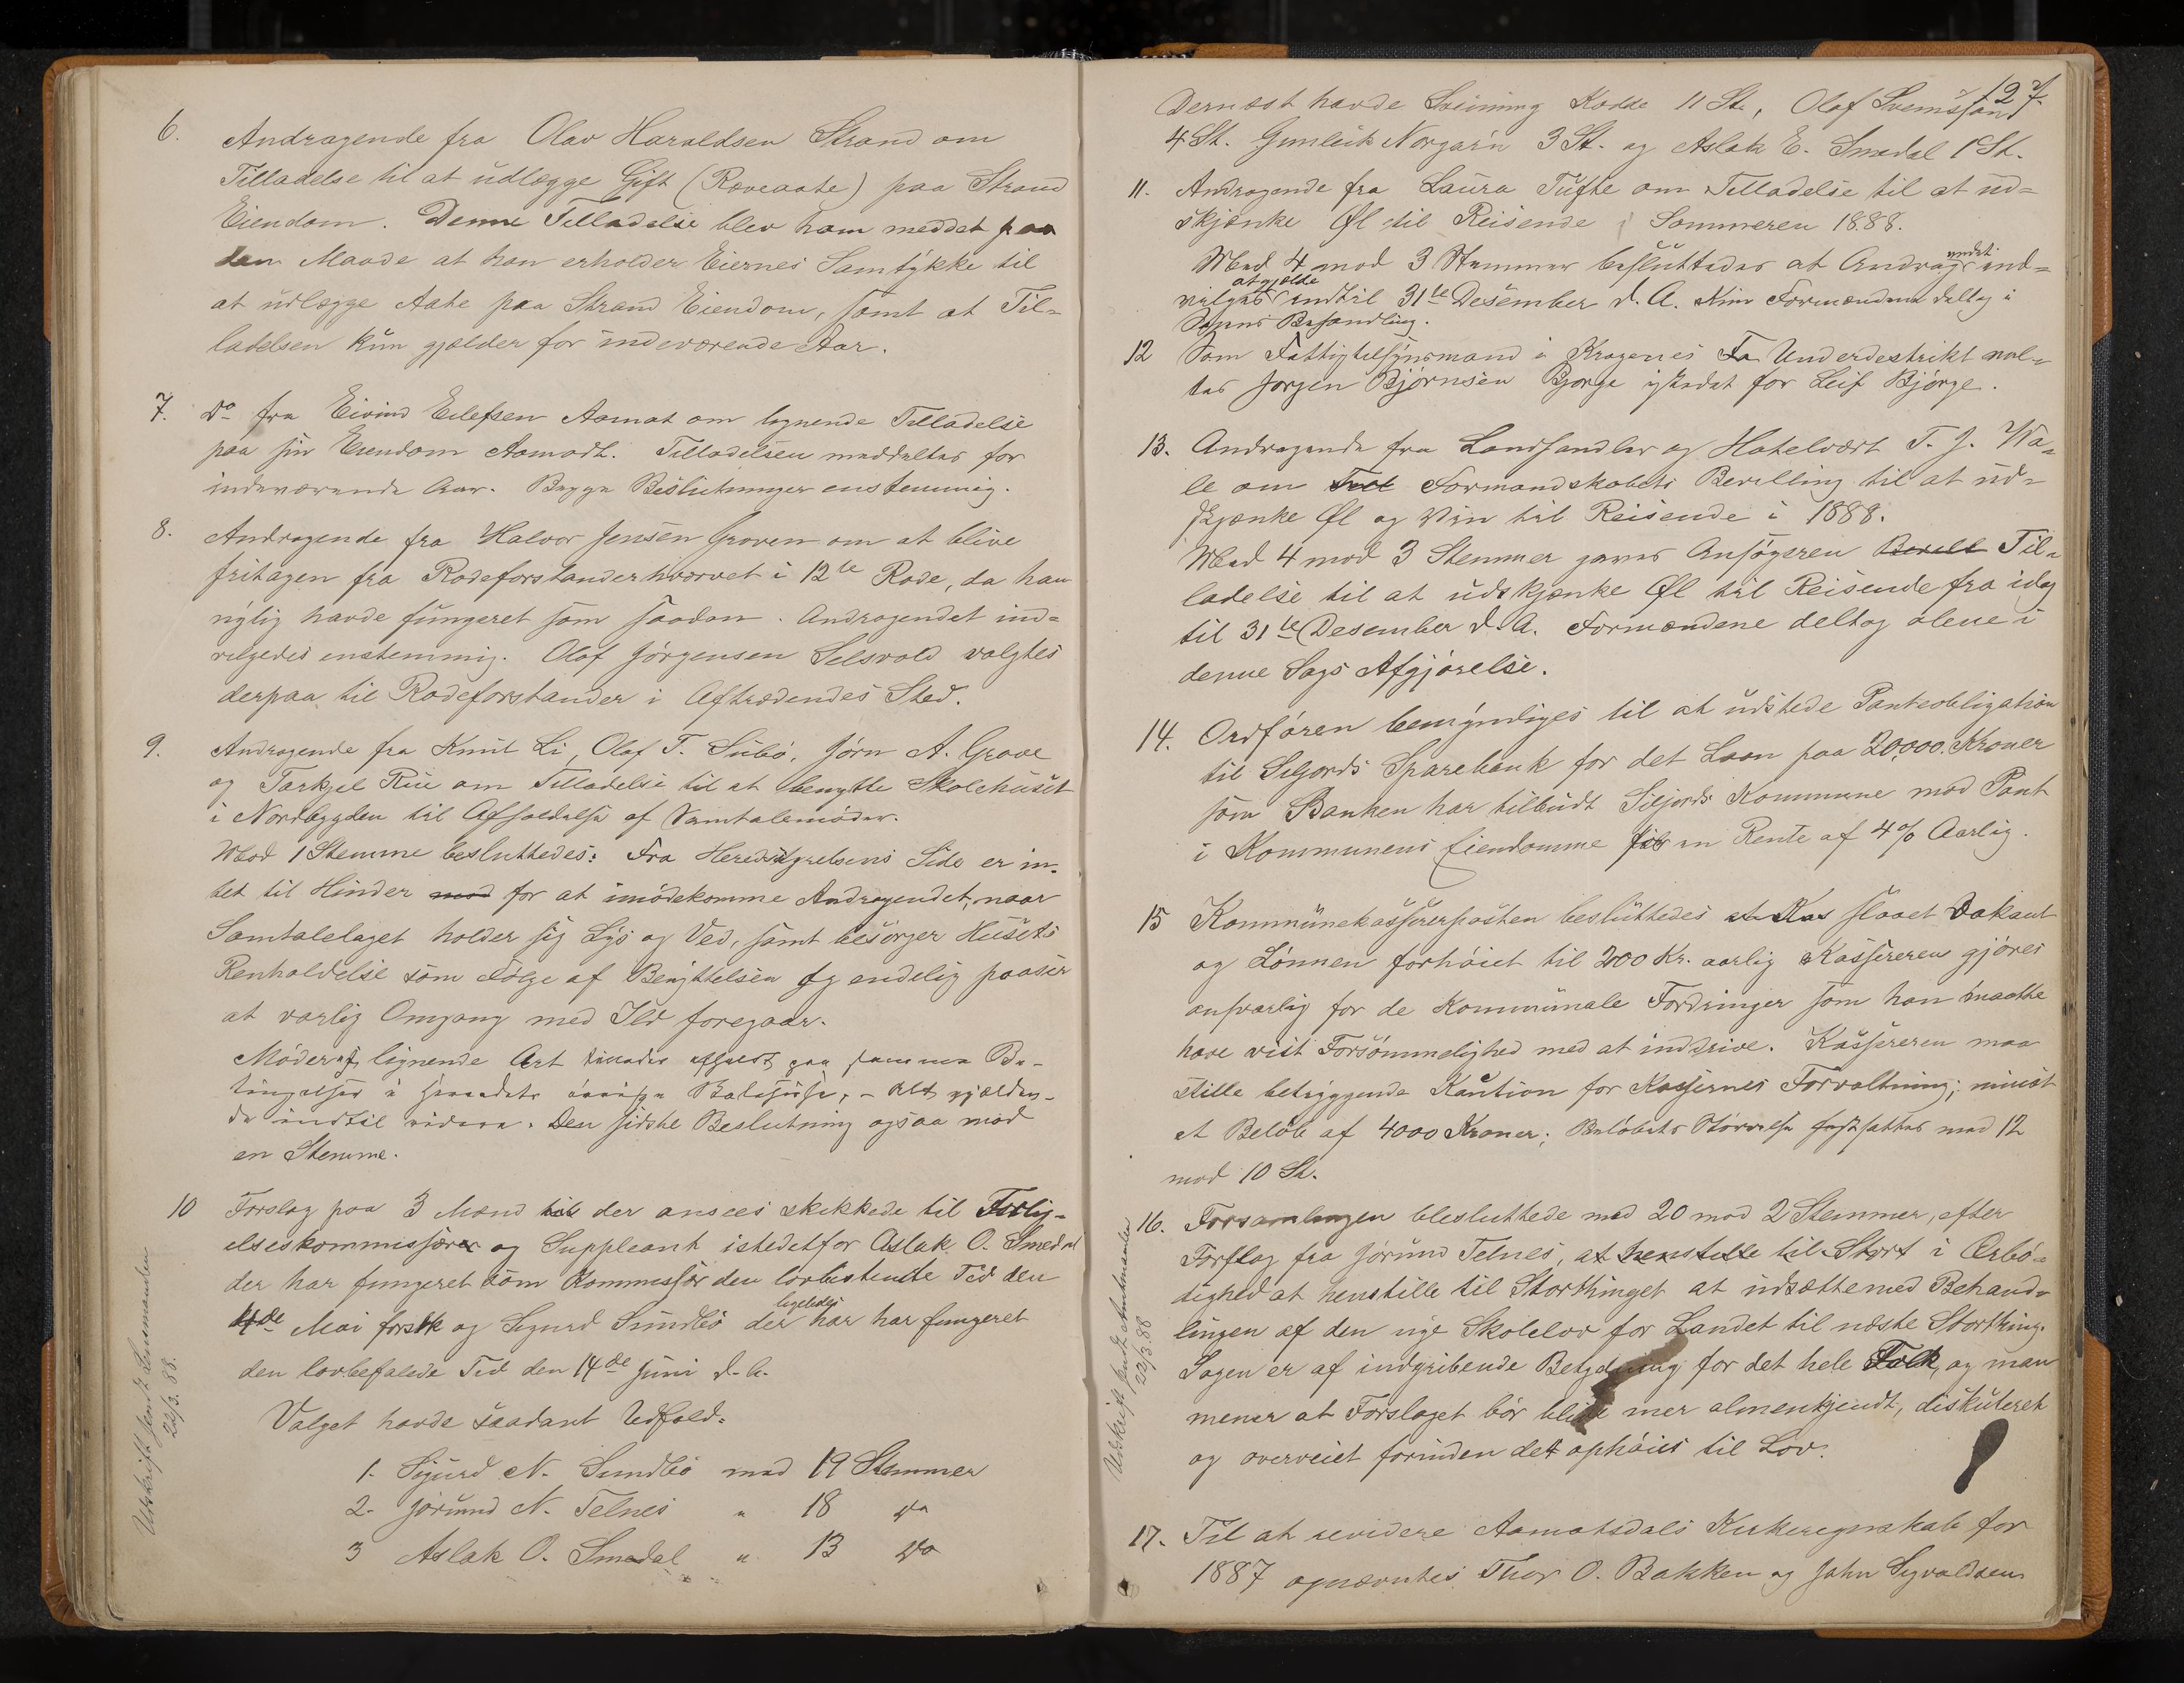 6. Andragende fra Olav Haraldsen Strand om
Tilladelse til at udlægge Gift (Ræveaate) paa Strand
Eiendom. Denne Tilladelse blev ham meddet paa
den Maade at han erholder Eiernes Samtykke til
at udlægge Aate paa Strand Eiendom, samt at Til-
ladelsen kun gjælder for indeværende Aar.
7. Do fra Eivind Eilefsen Aamot om lignende Tilladelse
paa sin Eiendom Aamodt. Tilladelsen meddeltes for
indeværende Aar. Begge Beslutninger enstemmig.
8. Andragende fra Halvor Jensen Groven om at blive
fritagen fra Rodeforstanderhvervet i 12te Rode, da han
nylig havde fungeret som saadan. Andragendet ind-
vilgedes enstemmig. Olaf Jörgensen Selsvold valgtes
derpaa til Rodeforstander i Aftrædendes Sted.
9. Andragende fra Knut Li, Olaf T. Sübö, Jörn A. Grave
og Tarkjel Rue om Tilladelse til at benytte Skolehuset
i Nordbygden til Afholdelse af Samtalemöder.
Mod 1 Stemme besluttedes: Fra Heredstyrelsens Side er in-
tet til Hinder mod for at imödekomme Andragendet, naar
Samtalelaget holder sig Lys og Ved, samt besörger Husets
Renholdelse som Fölge af Benyttelsen og endelig paaser
at varlig Omgang med Ild foregaar.
Möder af lignende Art tillades afholdt paa samme Be-
tingelser i Heredets övrige Skolehuse, - Alt gjælden-
de indtil videre. Den sidste Beslutning ogsaa mod
en Stemme.
10 Forslag paa 3 Mænd til der ansees skikkede til Forlig-
elseskommissærer og Suppleant istedetfor Aslak O. Smedal
der har fungeret som Kommissær den lovbestemte Tid den
4de Mai förstk og Sigurd Sundbö der ligeledes har har fungeret
den lovbefalede Tid den 14de Juni d. A.
Valget havde saadant Udfald:
1. Sigurd N. Sundbö med 19 Stemmer
2. Jörund N. Telnes " 18 Do
3 Aslak O. Smedal " 13 Do
Udskrift sendt Lensmanden
22/3. 88.
127.
Dernæst havde Sveinung Kodde 11 St., Olaf Svenssön
4 St. Gunleik Norgarn 3 St. og Aslak E. Smedal 1 St.
11. Andragende fra Laura Tufte om Tilladelse til at ud-
skjænke Øl til Reisende i Sommeren 1888.
Med 4 mod 3 Stemmer besluttedes at Andragendet ind-
vilges at gjælde indtil 31te Desember d. A. Kun Formændene deltog i
Sagens Behandling.
12 Som Fattigtilsynsmand i Kragenes Fa Underdistrikt val-
tes Jørgen Bjørnsen Bjørge istedet for Leif Bjørge.
13. Andragende fra Landhandler og Hotelvært T. J. Wa-
le om Till Formandskabets Bevilling til at ud-
skjænke Øl og Vin til Reisende i 1888.
Med 4 mod 3 Stemmer gaves Ansögeren Bevill Til-
ladelse til at udskjænke Øl til Reisende fra idag
til 31te Desember d. A. Formændene deltog alene i
denne Sags Afgjörelse.
14. Ordføren bemyndiges til at udstede Panteobligation
til Seljords Sparebank for det Laan paa 20,000 Kroner
som Banken har tilbudt Siljords Kommune mod Pant
i Kommunens Eiendomme for en Rente af 4% Aarlig.
15 Kommunekassererposten besluttedes at Kas slaaet vakant
og Lönnen forhöiet til 200 Kr. aarlig Kassereren gjöres
ansvarlig for de Kommunale Fordringer som han maatte
have vist Forsömmelighed med at inddrive. Kassereren maa
stille betryggende Kaution for Kassernes Forvaltning; minst
et Belöb af 4000 Kroner; Belöbets Störrelse fastsattes med 12
mod 10 St.
16. Forsamlingen besluttede med 20 mod 2 Stemmer, efter
Forslag fra Jörund Telnes, at henstille til Stort i Ærbö-
dighed at henstille til Storthinget at udsætte med Behand-
lingen af den nye Skolelov for Landet til næste Storthing.
Sagen er af indgribende Betydning for det hele Folk, og man
mener at Forslaget bör blive mer almenkjendt, diskuteret
og overveiet forinden det ophöies til Lov.
Udskrift sendt Amtmanden
22/3 88
17. Til at revidere Aamotsdals Kirkeregnskab for
1887 opnævntes Thor O. Bakken og John Sigvaldsen